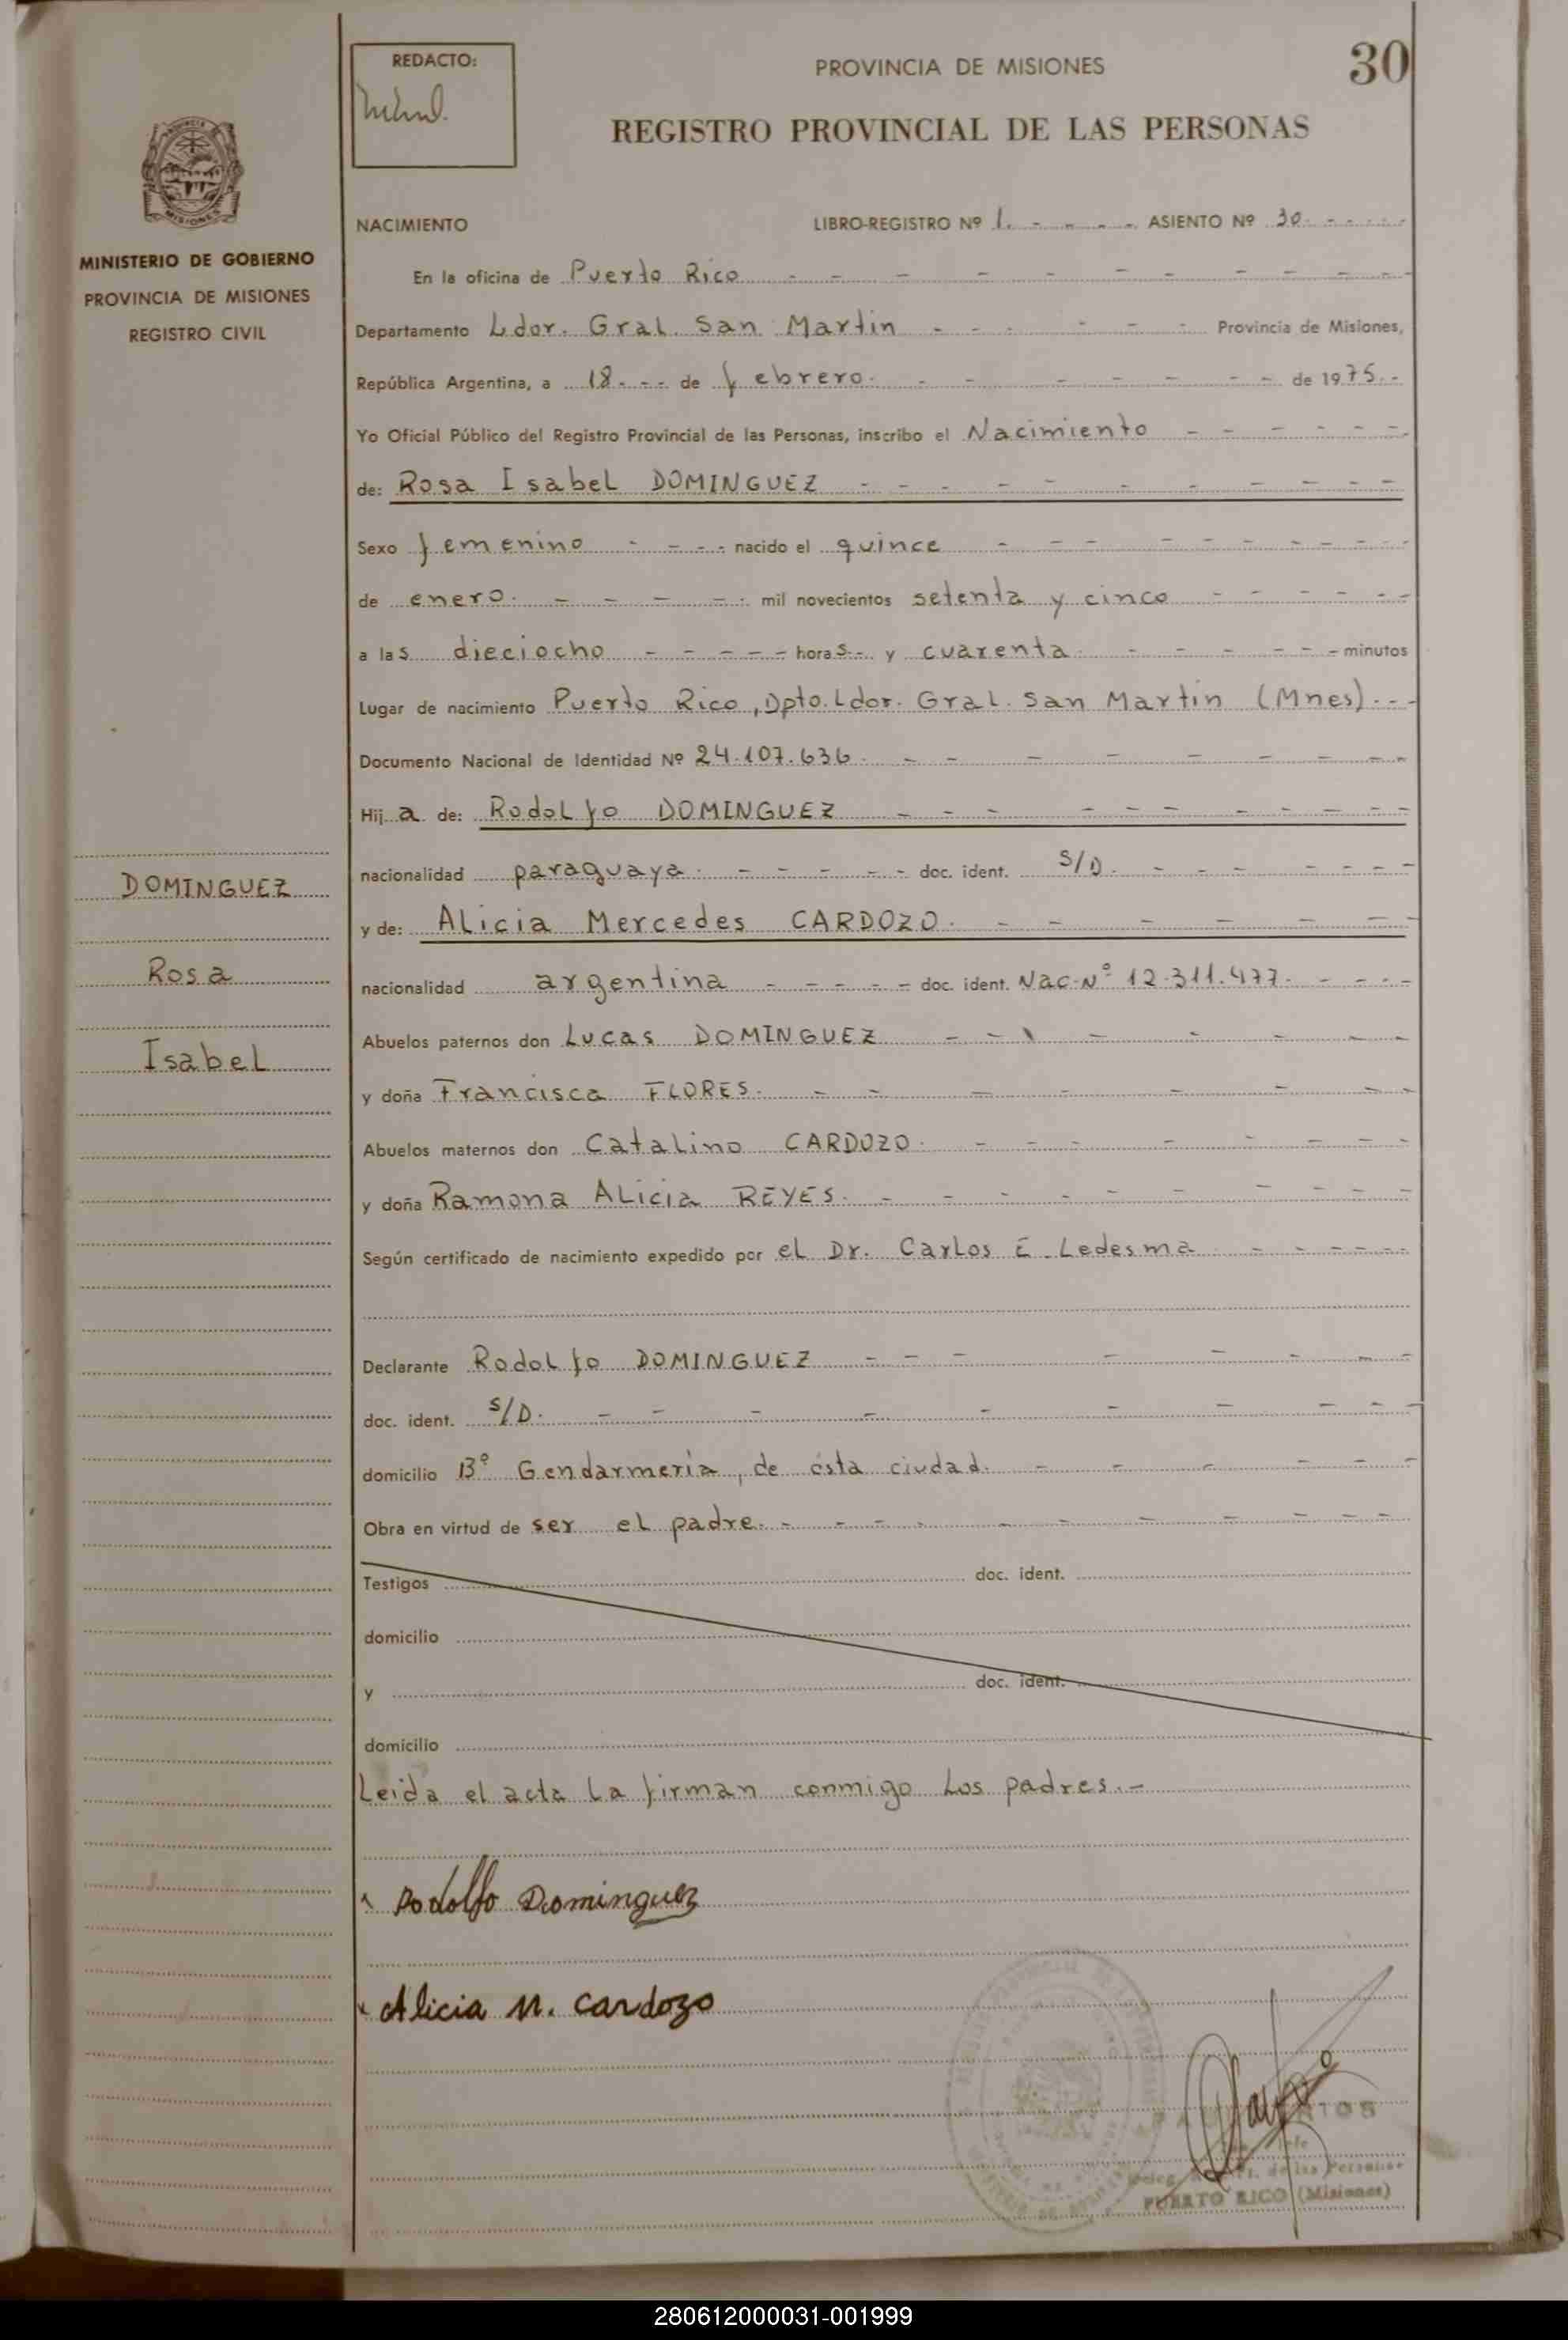 REDACTO:
PROVINCIA DE MISIONES
30
REGISTRO PROVINCIAL DE LAS PERSONAS
PROVINCIA
MISIONES
MINISTERIO DE GOBIERNO
PROVINCIA DE MISIONES
REGISTRO CIVIL
NACIMIENTO LIBRO-REGISTRO Nº 1. - - - - ASIENTO Nº 30. - - - -
En la oficina de Puerto Rico
Departamento Ldor. Gral. San Martin Provincia de Misiones,
República Argentina, a 18 de febrero. de 1975.-
Yo Oficial Público del Registro Provincial de las Personas, inscribo el Nacimiento
de: Rosa Isabel DOMINGUEZ
Sexo femenino nacido el quince
de enero. mil novecientos setenta y cinco
a las dieciocho horas y cuarenta minutos
Lugar de nacimiento Puerto Rico, Dpto. Ldor. Gral. San Martin (Mnes).--
Documento Nacional de Identidad Nº 24.107.636.
Hija de: Rodolfo DOMINGUEZ
nacionalidad paraguaya. doc. ident. S/D.
y de: Alicia Mercedes CARDOZO.
nacionalidad argentina doc. ident. Nac. Nº 12.311.477.
Abuelos paternos don Lucas DOMINGUEZ
y doña Francisca FLORES.
Abuelos maternos don Catalino CARDOZO.
y doña Ramona Alicia REYES.
Según certificado de nacimiento expedido por el Dr. Carlos E. Ledesma
Declarante Rodolfo DOMINGUEZ
doc. ident. S/D.
domicilio Bº Gendarmería, de ésta ciudad.
Obra en virtud de ser el padre.
Testigos doc. ident.
domicilio
y doc. ident.
domicilio
Leida el acta la firman conmigo Los padres.-
Rodolfo Dominguez
Alicia M. Cardozo
de las Personas
PUERTO RICO (Misiones)
DOMINGUEZ
Rosa
Isabel
280612000031-001999